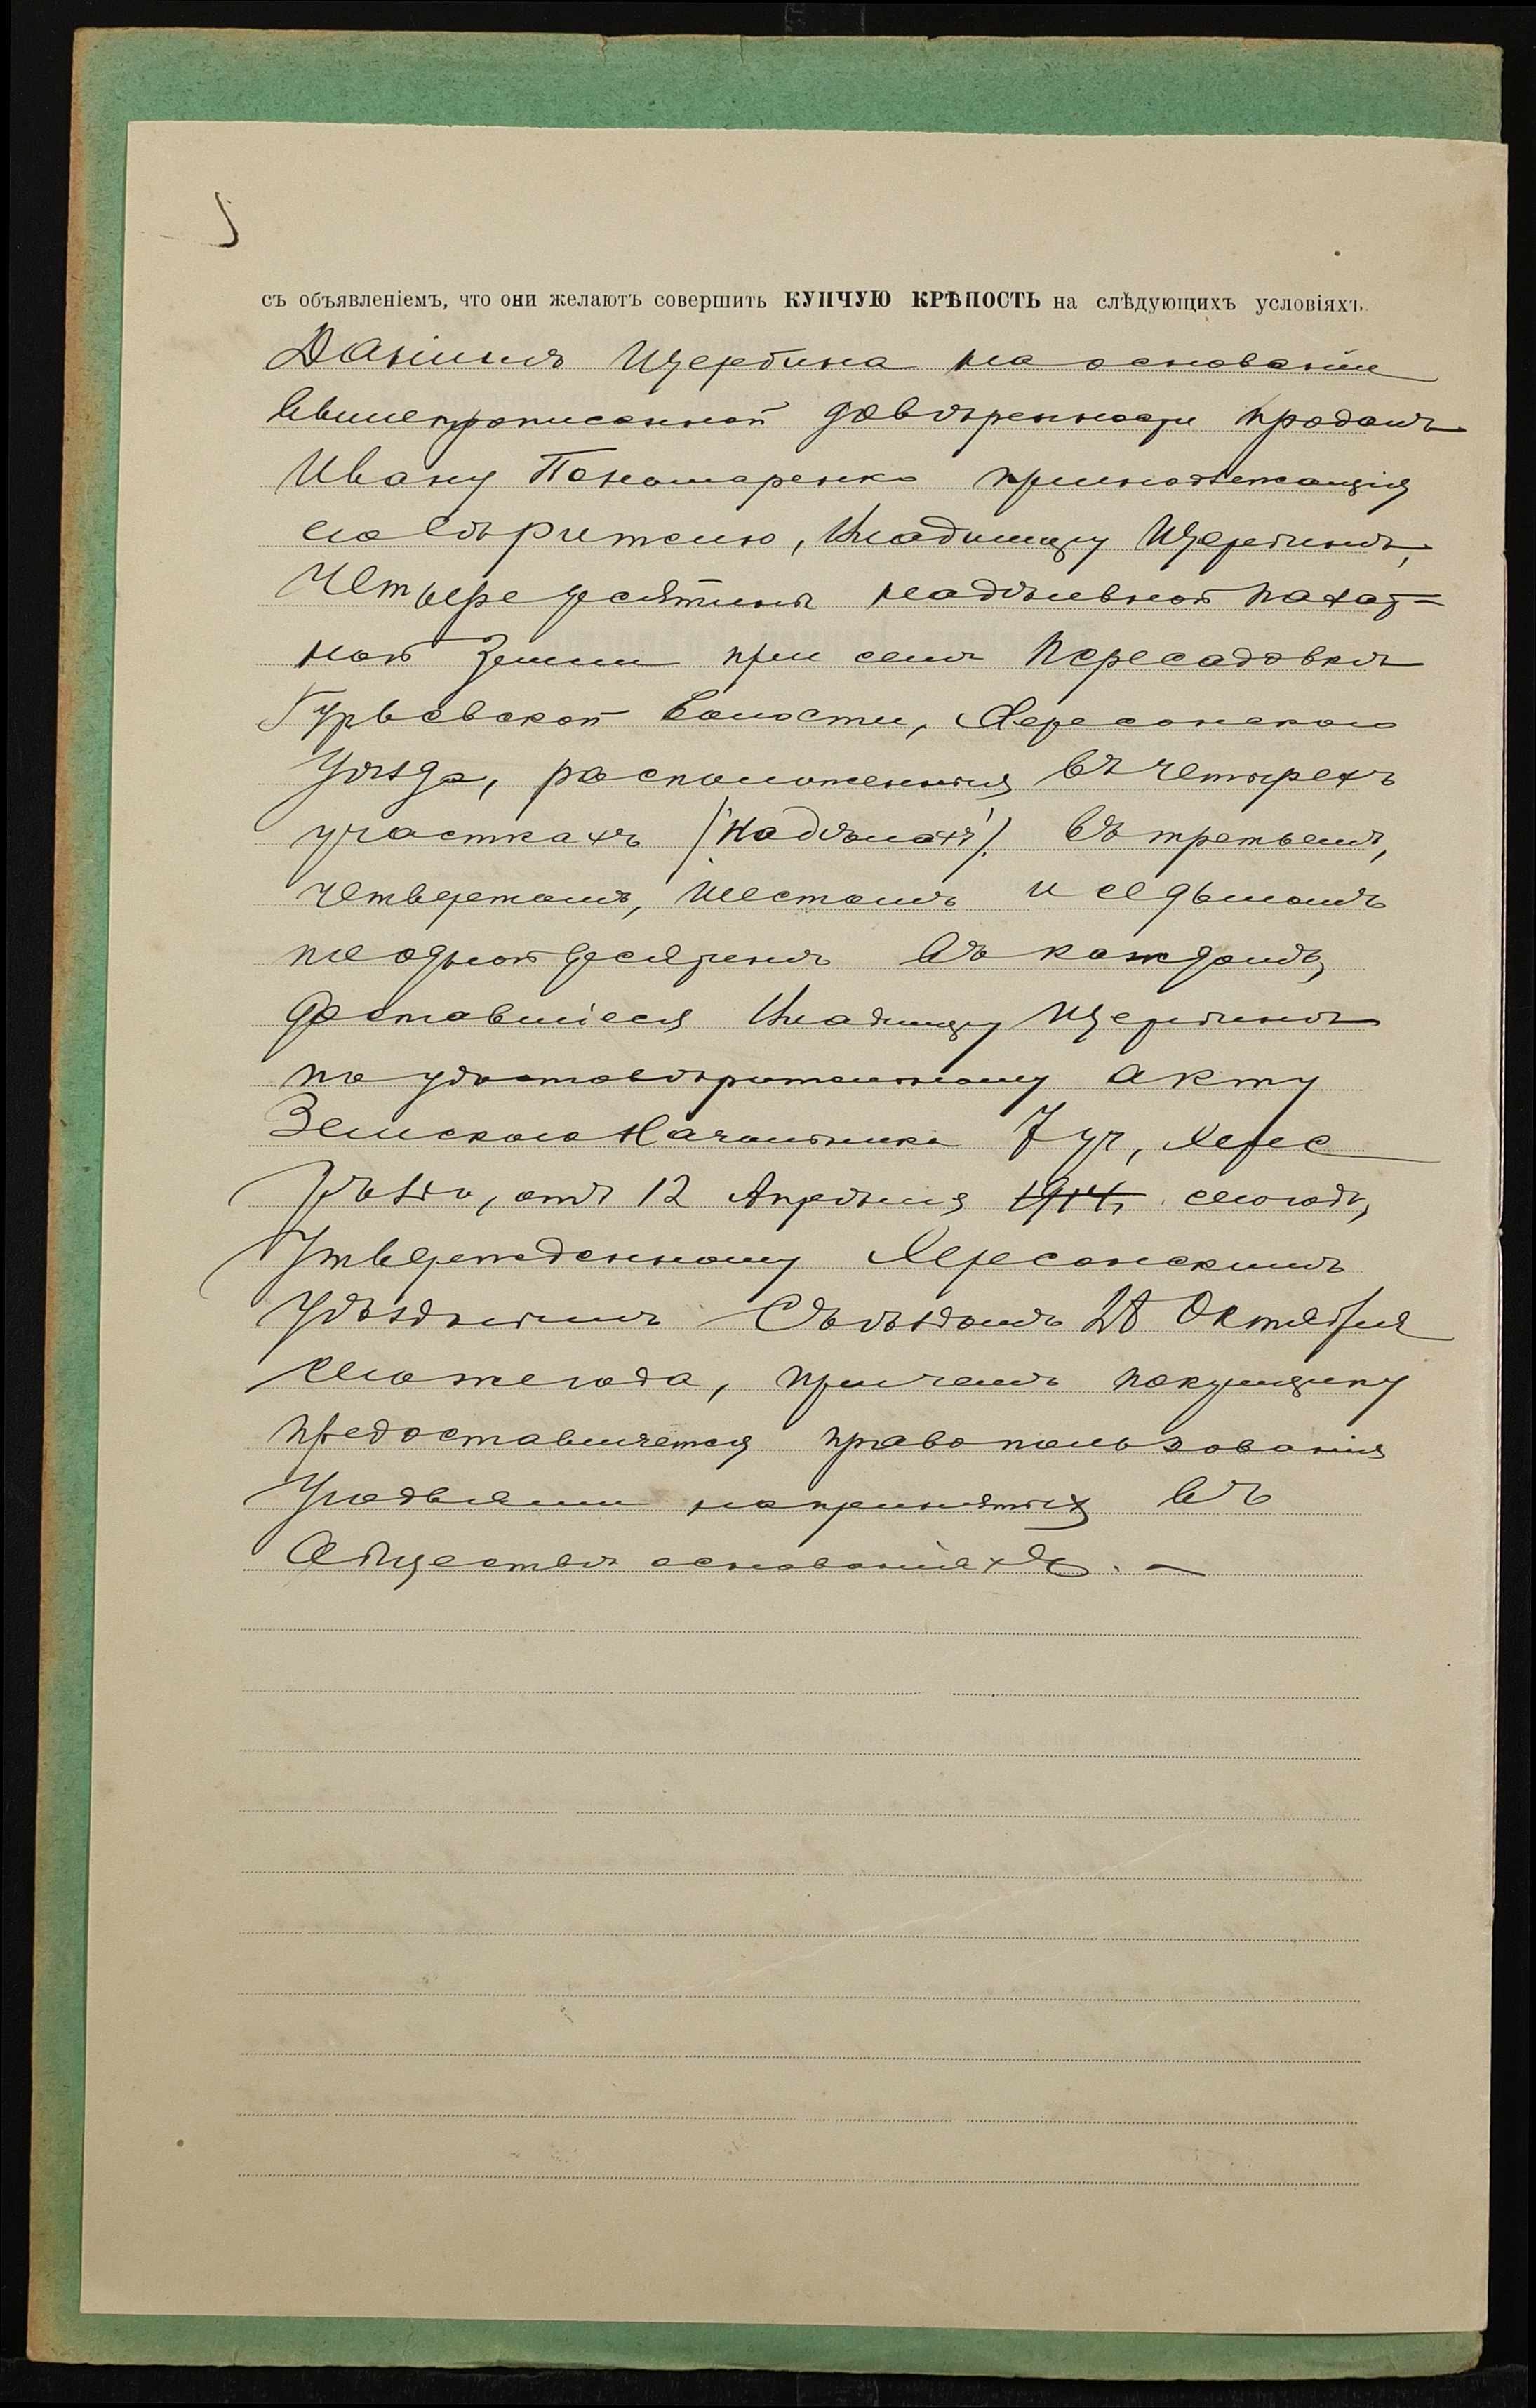 съ объявленіемъ, что они желаютъ совершить КУПЧУЮ КРѢПОСТЬ на слѣдующихъ условіяхъ.
Даніилъ Щербина на основаніи
вышепрописанной довѣренности продалъ
Ивану Пономаренко принадлежащія
его вѣрителю, Владиміру Щербинѣ,
четыре десятины надѣльной пахат=
ной земли при селѣ Пересадовкѣ
Гурьевской волости, Херсонскаго
уѣзда, расположенныя въ четырехъ
участкахъ /надѣлахъ/. въ третьемъ,
четвертомъ, шестомъ и седьмомъ
по одной десятинѣ въ каждомъ,
доставшіеся Владиміру Щербинѣ
по удостовѣрительному акту
Земскаго Начальника 7 уч, Херс
уѣзда, отъ 12 Апрѣля 1914, сего года,
утвержденному Херсонскимъ
Уѣзднымъ Съѣздомъ 28 Октября
сего же года, причемъ покупщику
предоставляется право пользованія
угодьями на принятых въ
Обществѣ основаніяхъ. —